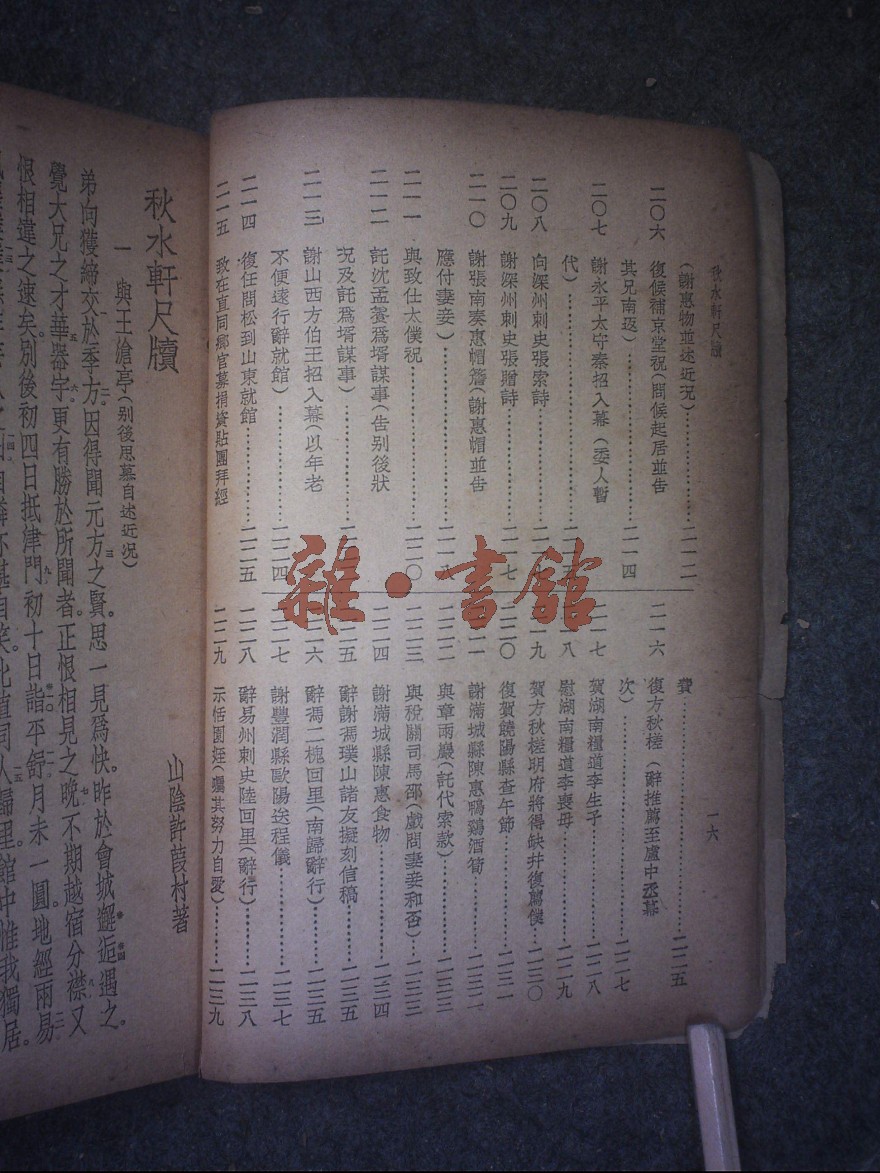 秋水軒尺牘
一六
(謝惠物並述近況)……二一二
二〇六 復候補京堂祝(問候起居並告
其兄南返)……二一四
二〇七 謝永平太守秦招入幕(委人暫
代)……
二〇八 向深州刺史張索詩……
二〇九 謝深州刺史張贈詩……
二一〇 謝張南奏惠帽簷(謝惠帽並告
應付妻妾)……
二一一 與致仕太僕祝……二二〇
二一二 託沈孟養爲壻謀事(告别後狀
況及託爲壻謀事)……
二一三 謝山西方伯王招入幕(以年老
不便遠行辭就館)……二二四
二一四 復任問松到山東就館……二二五
二一五 致在直同鄉官幕捐資貼團拜經
費……二二五
二一六 復方秋槎(辭推薦至盧中丞幕
次)……二二七
二一七 賀湖南糧道李生子……二二八
二一八 慰湖南糧道李喪母……二二九
二一九 賀方秋槎明府將得缺幷復薦僕……二三〇
二二〇 復賀饒陽縣查午節……二三一
二二一 謝滿城縣陳惠鴨鷄酒筍……二三二
二二二 與章雨巖(託代索款)……二三三
二二三 與稅關司馬邵(戲問妻妾和否)……二三三
二二四 謝滿城縣陳惠食物……二三四
二二五 辭謝馮璞山諸友擬刻信稿……二三五
二二六 辭馮二槐回里(南歸辭行)……二三五
二二七 謝豐潤縣歐陽送程儀……二三七
二二八 辭易州刺史陸回里(辭行)……二三八
二二九 示恬園姪(囑其努力自愛)……二三九
雜·書館
秋水軒尺牘
山陰許葭村著
一 與王滄亭(别後思慕自述近況)
弟向獲締交於季方。因得聞元方之賢。思一見爲快。昨於會城邂逅遇之。
覺大兄之才華器宇。更有勝於所聞者。正恨相見之晚。不期越宿分襟。又
恨相違之速矣。别後初四日抵津門。初十日詣平舒。月未一圓。地經兩易。
自笑。此直同人歸里。館中惟我獨居。